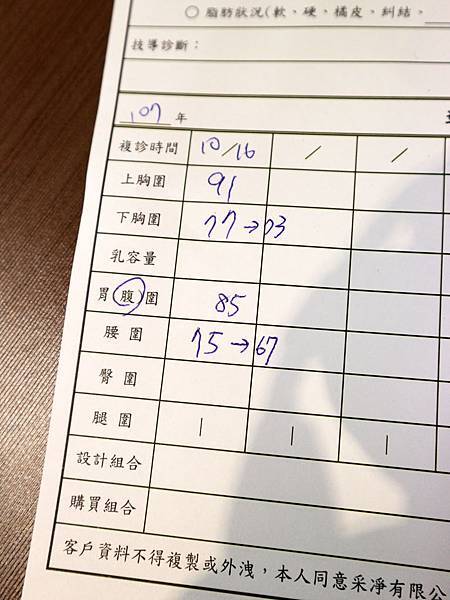 ○ 脂肪狀況(軟、硬、橘皮、糾結、
技導診斷：
107 年
複診時間 10/16 / /
上胸圍 91
下胸圍 77→73
乳容量
胃腹圍 85
腰 圍 75→67
臀 圍
腿 圍 | | |
設計組合
購買組合
客戶資料不得複製或外洩，本人同意采淨有限公